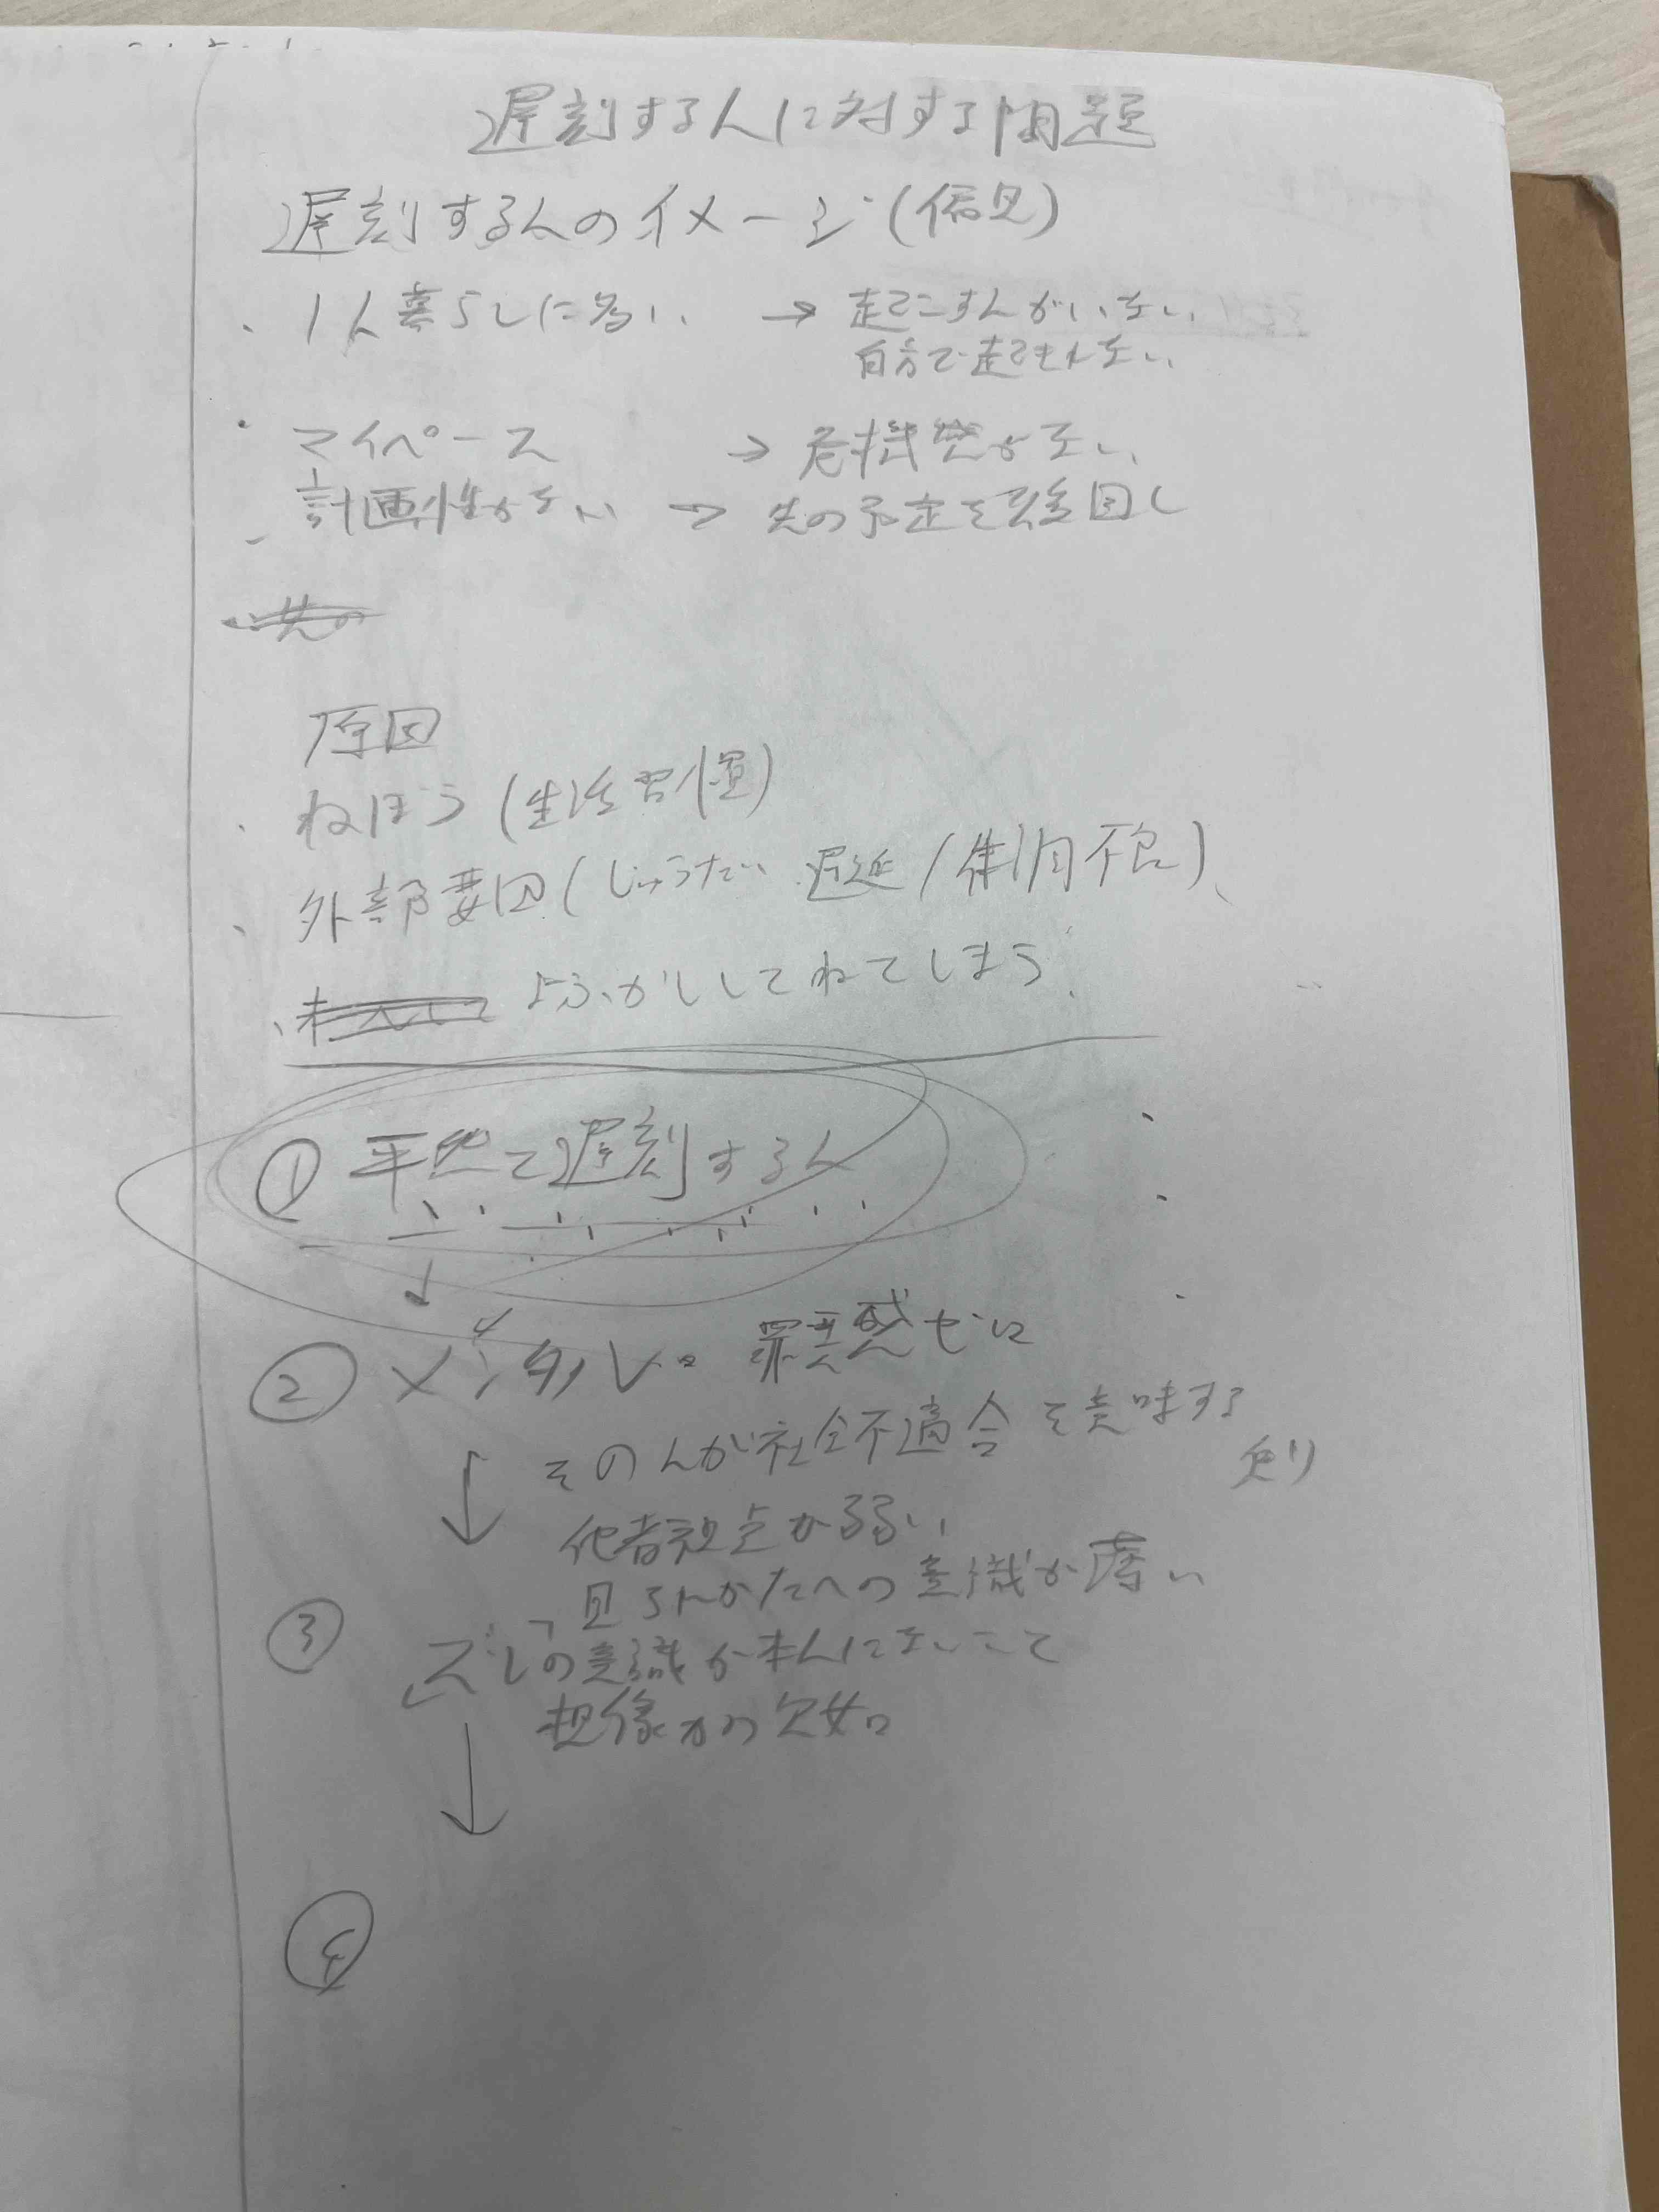 遅刻する人に対する問題
遅刻する人のイメージ(偏見)
・1人暮らしに多い → 起こす人がいない
自分で起きれない
・マイペース → 危機感がない
・計画性がない → 先の予定を後回し
・先の
原因
・ねぼう(生活習慣)
・外部要因(じゅうたい 遅延/体調不良)
・よふかししてねてしまう
① 平然と遅刻する人
② メンタル 罪悪感ゼロ
その人が社会不適合を意味する
他者視点が弱い
見られかたへの意識が薄い
③ ズレの意識が本人にないこと
想像力の欠如
④